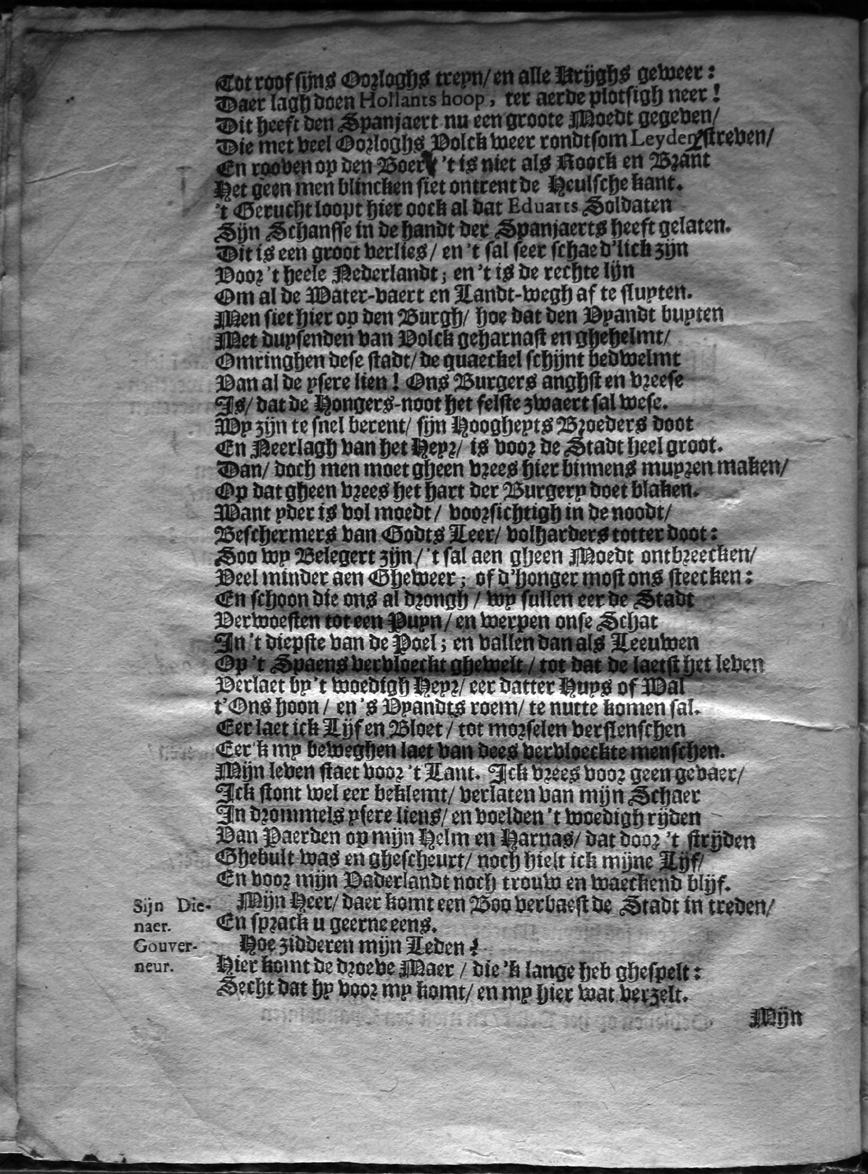 Tot roof sijns Oorloghs treyn/ en alle Krijghs geweer:
Daer lagh doen Hollants hoop, ter aerde plotsigh neer!
Dit heeft den Spanjaert nu een groote Moedt gegeven/
Die met veel Oorloghs Volck weer rondtsom Leyden streven/
En rooven op den Boer/ 't is niet als Roock en Brant
Het geen men blincken siet ontrent de Heulsche kant.
't Gerucht loopt hier oock al dat Eduarts Soldaten
Sijn Schansse in de handt der Spanjaerts heeft gelaten.
Dit is een groot verlies/ en 't sal seer schaed'lick zijn
Voor 't heele Nederlandt; en 't is de rechte lijn
Om al de Water-vaert en Landt-wegh af te sluyten.
Men siet hier op den Burgh/ hoe dat den Vyandt buyten
Met duysenden van Volck geharnast en ghehelmt/
Omringhen dese stadt/ de quaeckel schijnt bedwelmt
Van al de ysere lien! Ons Burgers anghst en vreese
Is/ dat de Hongers-noot het felste zwaert sal wese.
Wy zijn te snel berent/ sijn Hoogheyts Broeders doot
En Neerlagh van het Heyr/ is voor de Stadt heel groot.
Dan/ doch men moet gheen vrees hier binnens muyren maken/
Op dat gheen vrees het hart der Burgery doet blaken.
Want yder is vol moedt/ voorsichtigh in de noodt/
Beschermers van Godts Leer/ volharders totter doot:
Soo wy Belegert zijn/ 't sal aen gheen Moedt ontbreecken/
Veel minder aen Gheweer; of d'honger most ons steecken:
En schoon die ons al drongh/ wy sullen eer de Stadt
Verwoesten tot een Puyn/ en werpen onse Schat
In 't diepste van de Poel; en vallen dan als Leeuwen
Op 't Spaens vervloeckt ghewelt/ tot dat de laetst het leven
Verlaet by 't woedigh Heyr/ eer datter Huys of Wal
t'Ons hoon/ en 's Vyandts roem/ te nutte komen sal.
Eer laet ick Lijf en Bloet/ tot morselen verslenschen
Eer'k my beweghen laet van dees vervloeckte menschen.
Mijn leven staet voor 't Lant. Ick vrees voor geen gevaer/
Ick stont wel eer beklemt/ verlaten van mijn Schaer
In drommels ysere liens/ en voelden 't woedigh rijden
Van Paerden op mijn Helm en Harnas/ dat door 't strijden
Ghebult was en ghescheurt/ noch hielt ick mijne Lijf/
En voor mijn Vaderlandt noch trouw en waeckend blijf.
Sijn Die- Mijn Heer/ daer komt een Boo verbaest de Stadt in treden/
naer. En sprack u geerne eens.
Gouver- Hoe zidderen mijn Leden!
neur. Hier komt de droeve Maer/ die 'k lange heb ghespelt:
Secht dat hy voor my komt/ en my hier wat verzelt.
Mijn